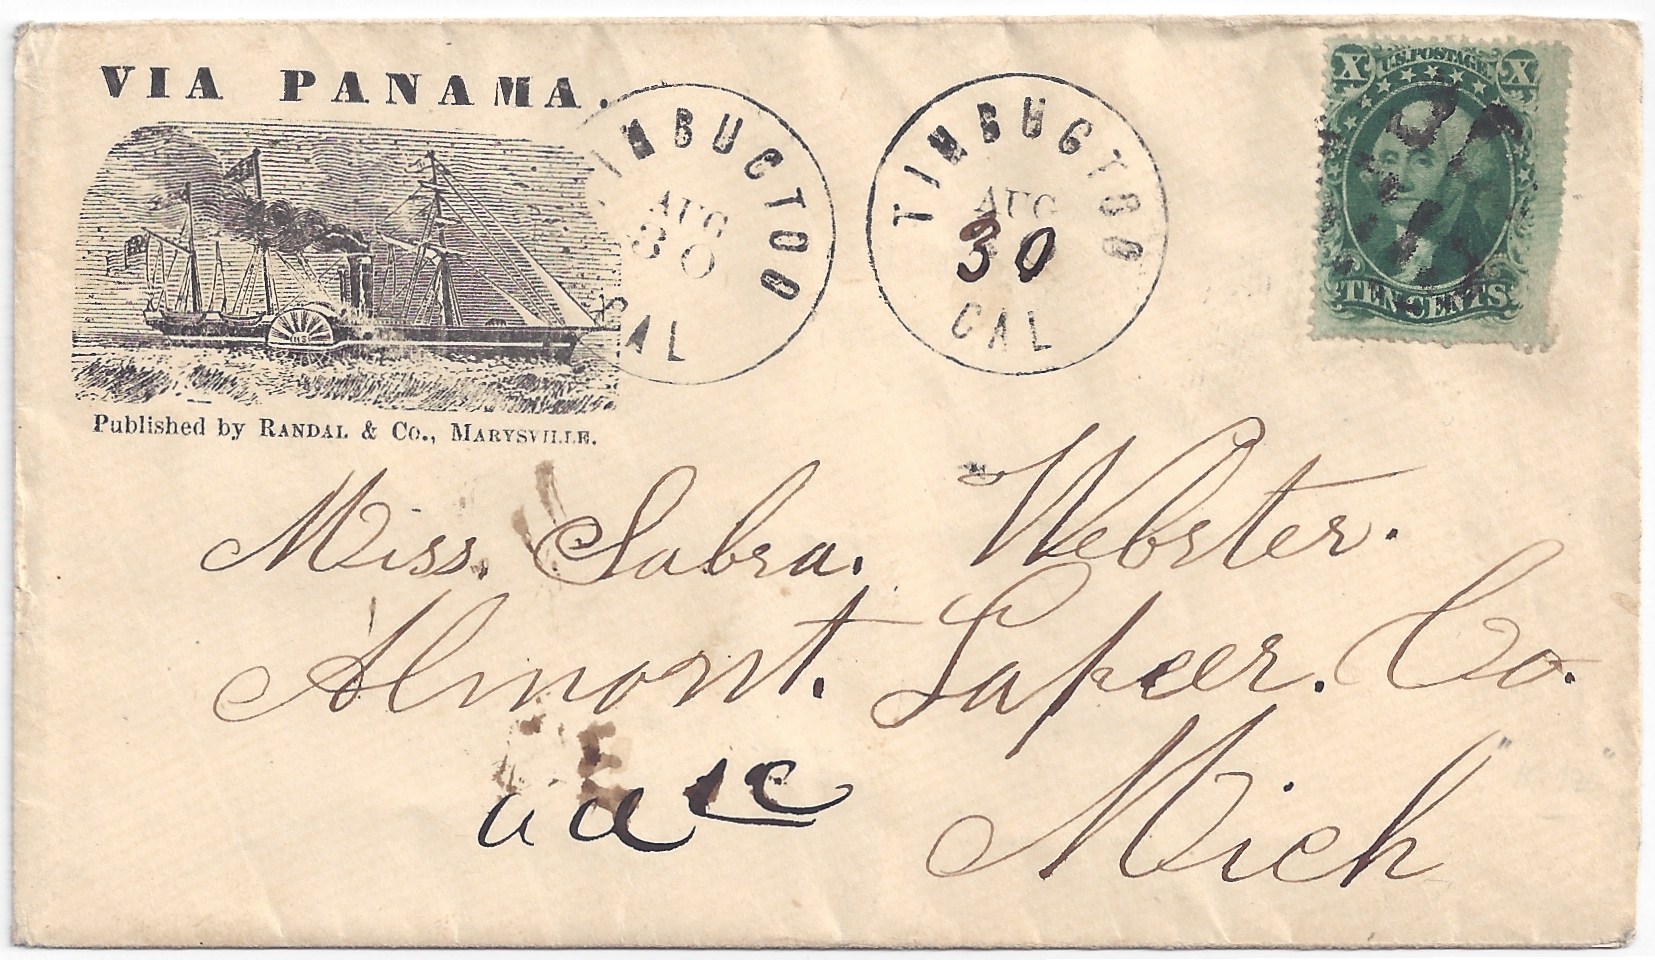 VIA PANAMA.
Published by RANDAL & Co., MARYSVILLE.
IMBUCTOO
AUG
30
CAL
TIMBUCTOO
AUG
30
CAL
X U.S. POSTAGE X
TEN CENTS
Miss. Sabra. Webster.
Almont. Lapeer. Co.
Mich